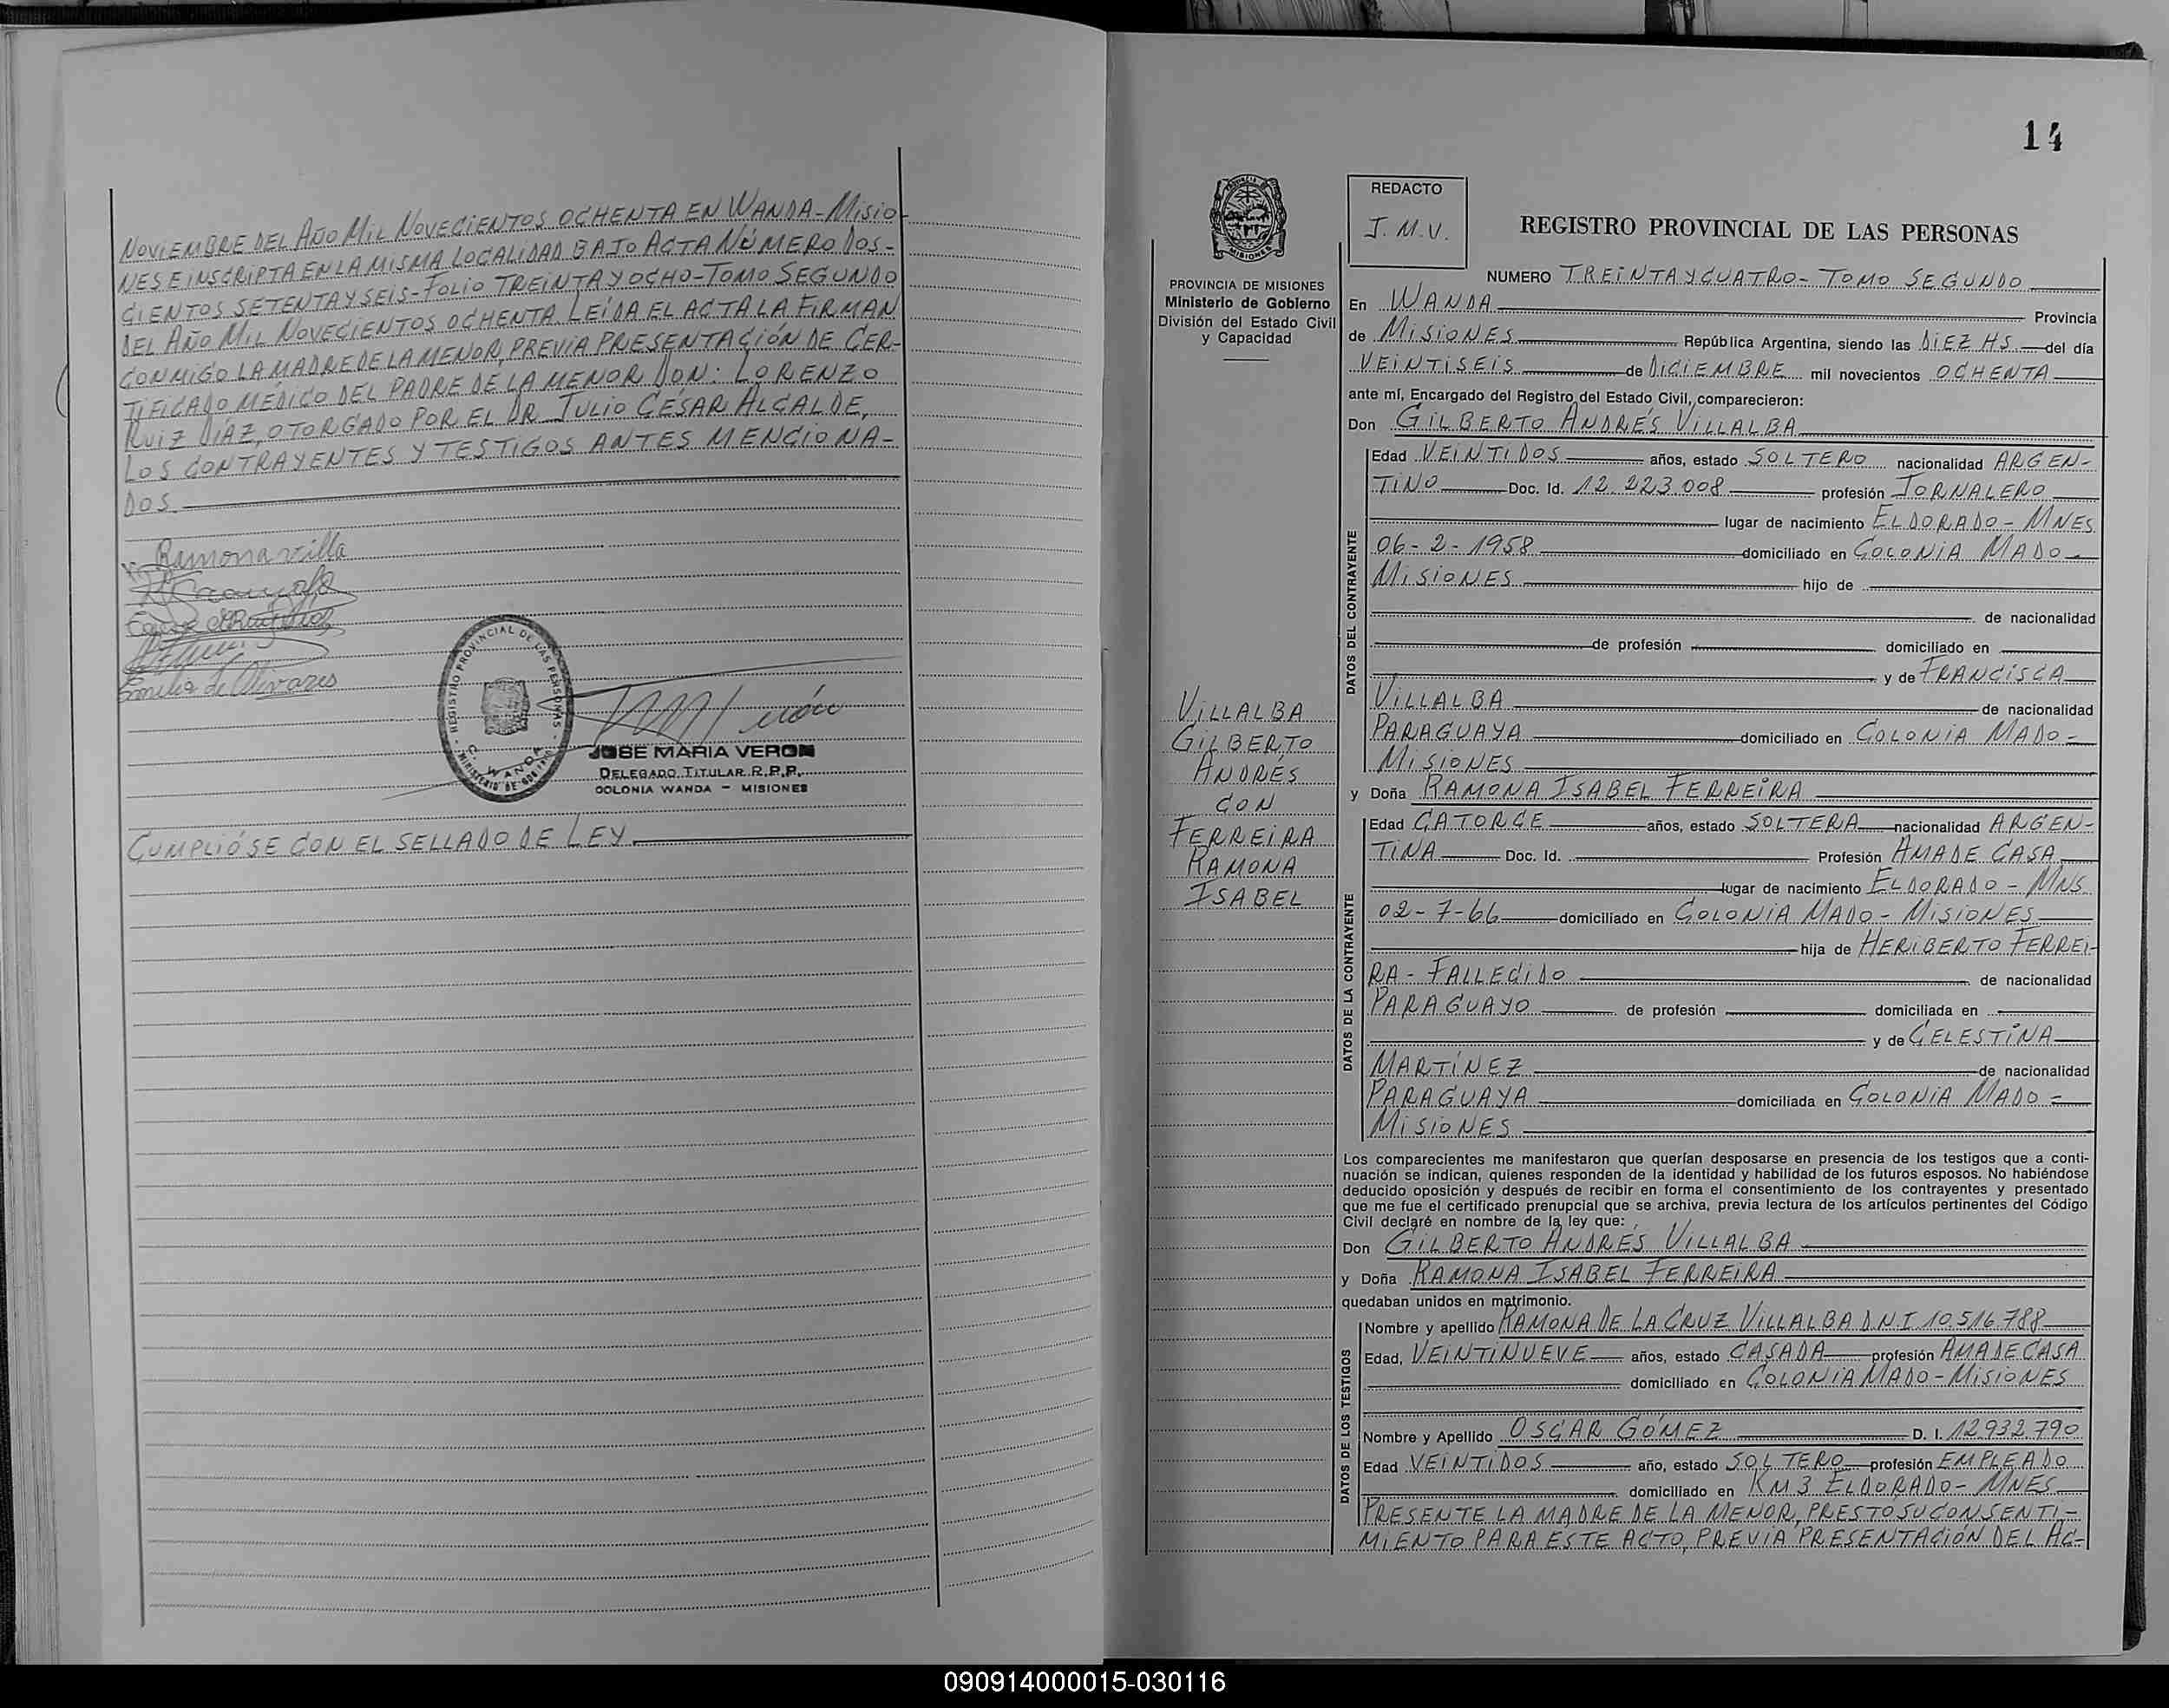 NOVIEMBRE DEL AÑO MIL NOVECIENTOS OCHENTA EN WANDA-MISIO
NES E INSCRIPTA EN LA MISMA LOCALIDAD BAJO ACTA NÚMERO DOS-
CIENTOS SETENTA Y SEIS-FOLIO TREINTA Y OCHO-TOMO SEGUNDO
DEL AÑO MIL NOVECIENTOS OCHENTA. LEÍDA EL ACTA LA FIRMAN
CONMIGO LA MADRE DE LA MENOR, PREVIA PRESENTACIÓN DE CER-
TIFICADO MÉDICO DEL PADRE DE LA MENOR DON: LORENZO
RUIZ DÍAZ, OTORGADO POR EL DR JULIO CÉSAR ALCALDE,
LOS CONTRAYENTES Y TESTIGOS ANTES MENCIONA-
DOS.
Ramona villa
Emilia de Olivares
REGISTRO PROVINCIAL DE LAS PERSONAS
C. WANDA
MINISTERIO DE GOBIERNO
JOSE MARIA VERON
DELEGADO TITULAR R.P.P.
COLONIA WANDA - MISIONES
CUMPLIÓSE CON EL SELLADO DE LEY
14
PROVINCIA DE MISIONES
Ministerio de Gobierno
División del Estado Civil
y Capacidad
VILLALBA
GILBERTO
ANDRÉS
CON
FERREIRA
RAMONA
ISABEL
REDACTO
J.M.V.
REGISTRO PROVINCIAL DE LAS PERSONAS
NUMERO TREINTA Y CUATRO-TOMO SEGUNDO
En WANDA Provincia
de MISIONES República Argentina, siendo las DIEZ HS del día
VEINTISEIS de DICIEMBRE mil novecientos OCHENTA
ante mí, Encargado del Registro del Estado Civil, comparecieron:
Don GILBERTO ANDRÉS VILLALBA
DATOS DEL CONTRAYENTE
Edad VEINTIDOS años, estado SOLTERO nacionalidad ARGEN-
TINO Doc. Id. 12.223.008 profesión JORNALERO
lugar de nacimiento ELDORADO-MNES
06-2-1958 domiciliado en COLONIA MADO-
MISIONES hijo de
de nacionalidad
de profesión domiciliado en
y de FRANCISCA
VILLALBA de nacionalidad
PARAGUAYA domiciliado en COLONIA MADO-
MISIONES
y Doña RAMONA ISABEL FERREIRA
DATOS DE LA CONTRAYENTE
Edad CATORCE años, estado SOLTERA nacionalidad ARGEN-
TINA Doc. Id. Profesión AMA DE CASA
lugar de nacimiento ELDORADO-MNS
02-7-66 domiciliado en COLONIA MADO-MISIONES
hija de HERIBERTO FERREI-
RA-FALLECIDO de nacionalidad
PARAGUAYO de profesión domiciliada en
y de CELESTINA
MARTÍNEZ de nacionalidad
PARAGUAYA domiciliada en COLONIA MADO-
MISIONES
Los comparecientes me manifestaron que querían desposarse en presencia de los testigos que a conti-
nuación se indican, quienes responden de la identidad y habilidad de los futuros esposos. No habiéndose
deducido oposición y después de recibir en forma el consentimiento de los contrayentes y presentado
que me fue el certificado prenupcial que se archiva, previa lectura de los artículos pertinentes del Código
Civil declaré en nombre de la ley que:
Don GILBERTO ANDRÉS VILLALBA
y Doña RAMONA ISABEL FERREIRA
quedaban unidos en matrimonio.
DATOS DE LOS TESTIGOS
Nombre y apellido RAMONA DE LA CRUZ VILLALBA DNI 10.516.788
Edad, VEINTINUEVE años, estado CASADA profesión AMA DE CASA
domiciliado en COLONIA MADO-MISIONES
Nombre y Apellido OSCAR GÓMEZ D. I. 12.932.790
Edad VEINTIDOS año, estado SOLTERO profesión EMPLEADO
domiciliado en KM 3 ELDORADO-MNES
PRESENTE LA MADRE DE LA MENOR, PRESTÓ SU CONSENTI-
MIENTO PARA ESTE ACTO, PREVIA PRESENTACIÓN DEL AC-
090914000015-030116